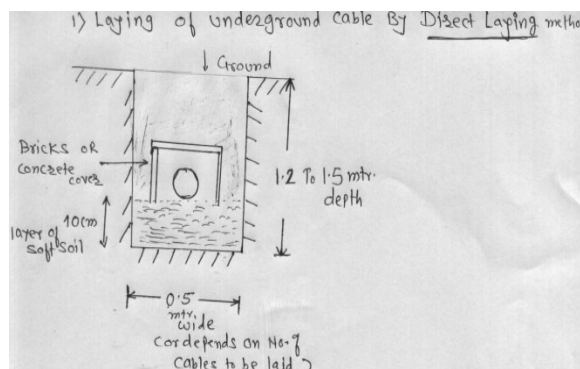 1) Laying of underground cable By Direct Laying metho
↓ Ground
Bricks OR
concrete
cover
1.2 To 1.5 mtr.
depth
10cm
layer of
soft soil
0.5
mtr.
wide
(or depends on No. of
cables to be laid)